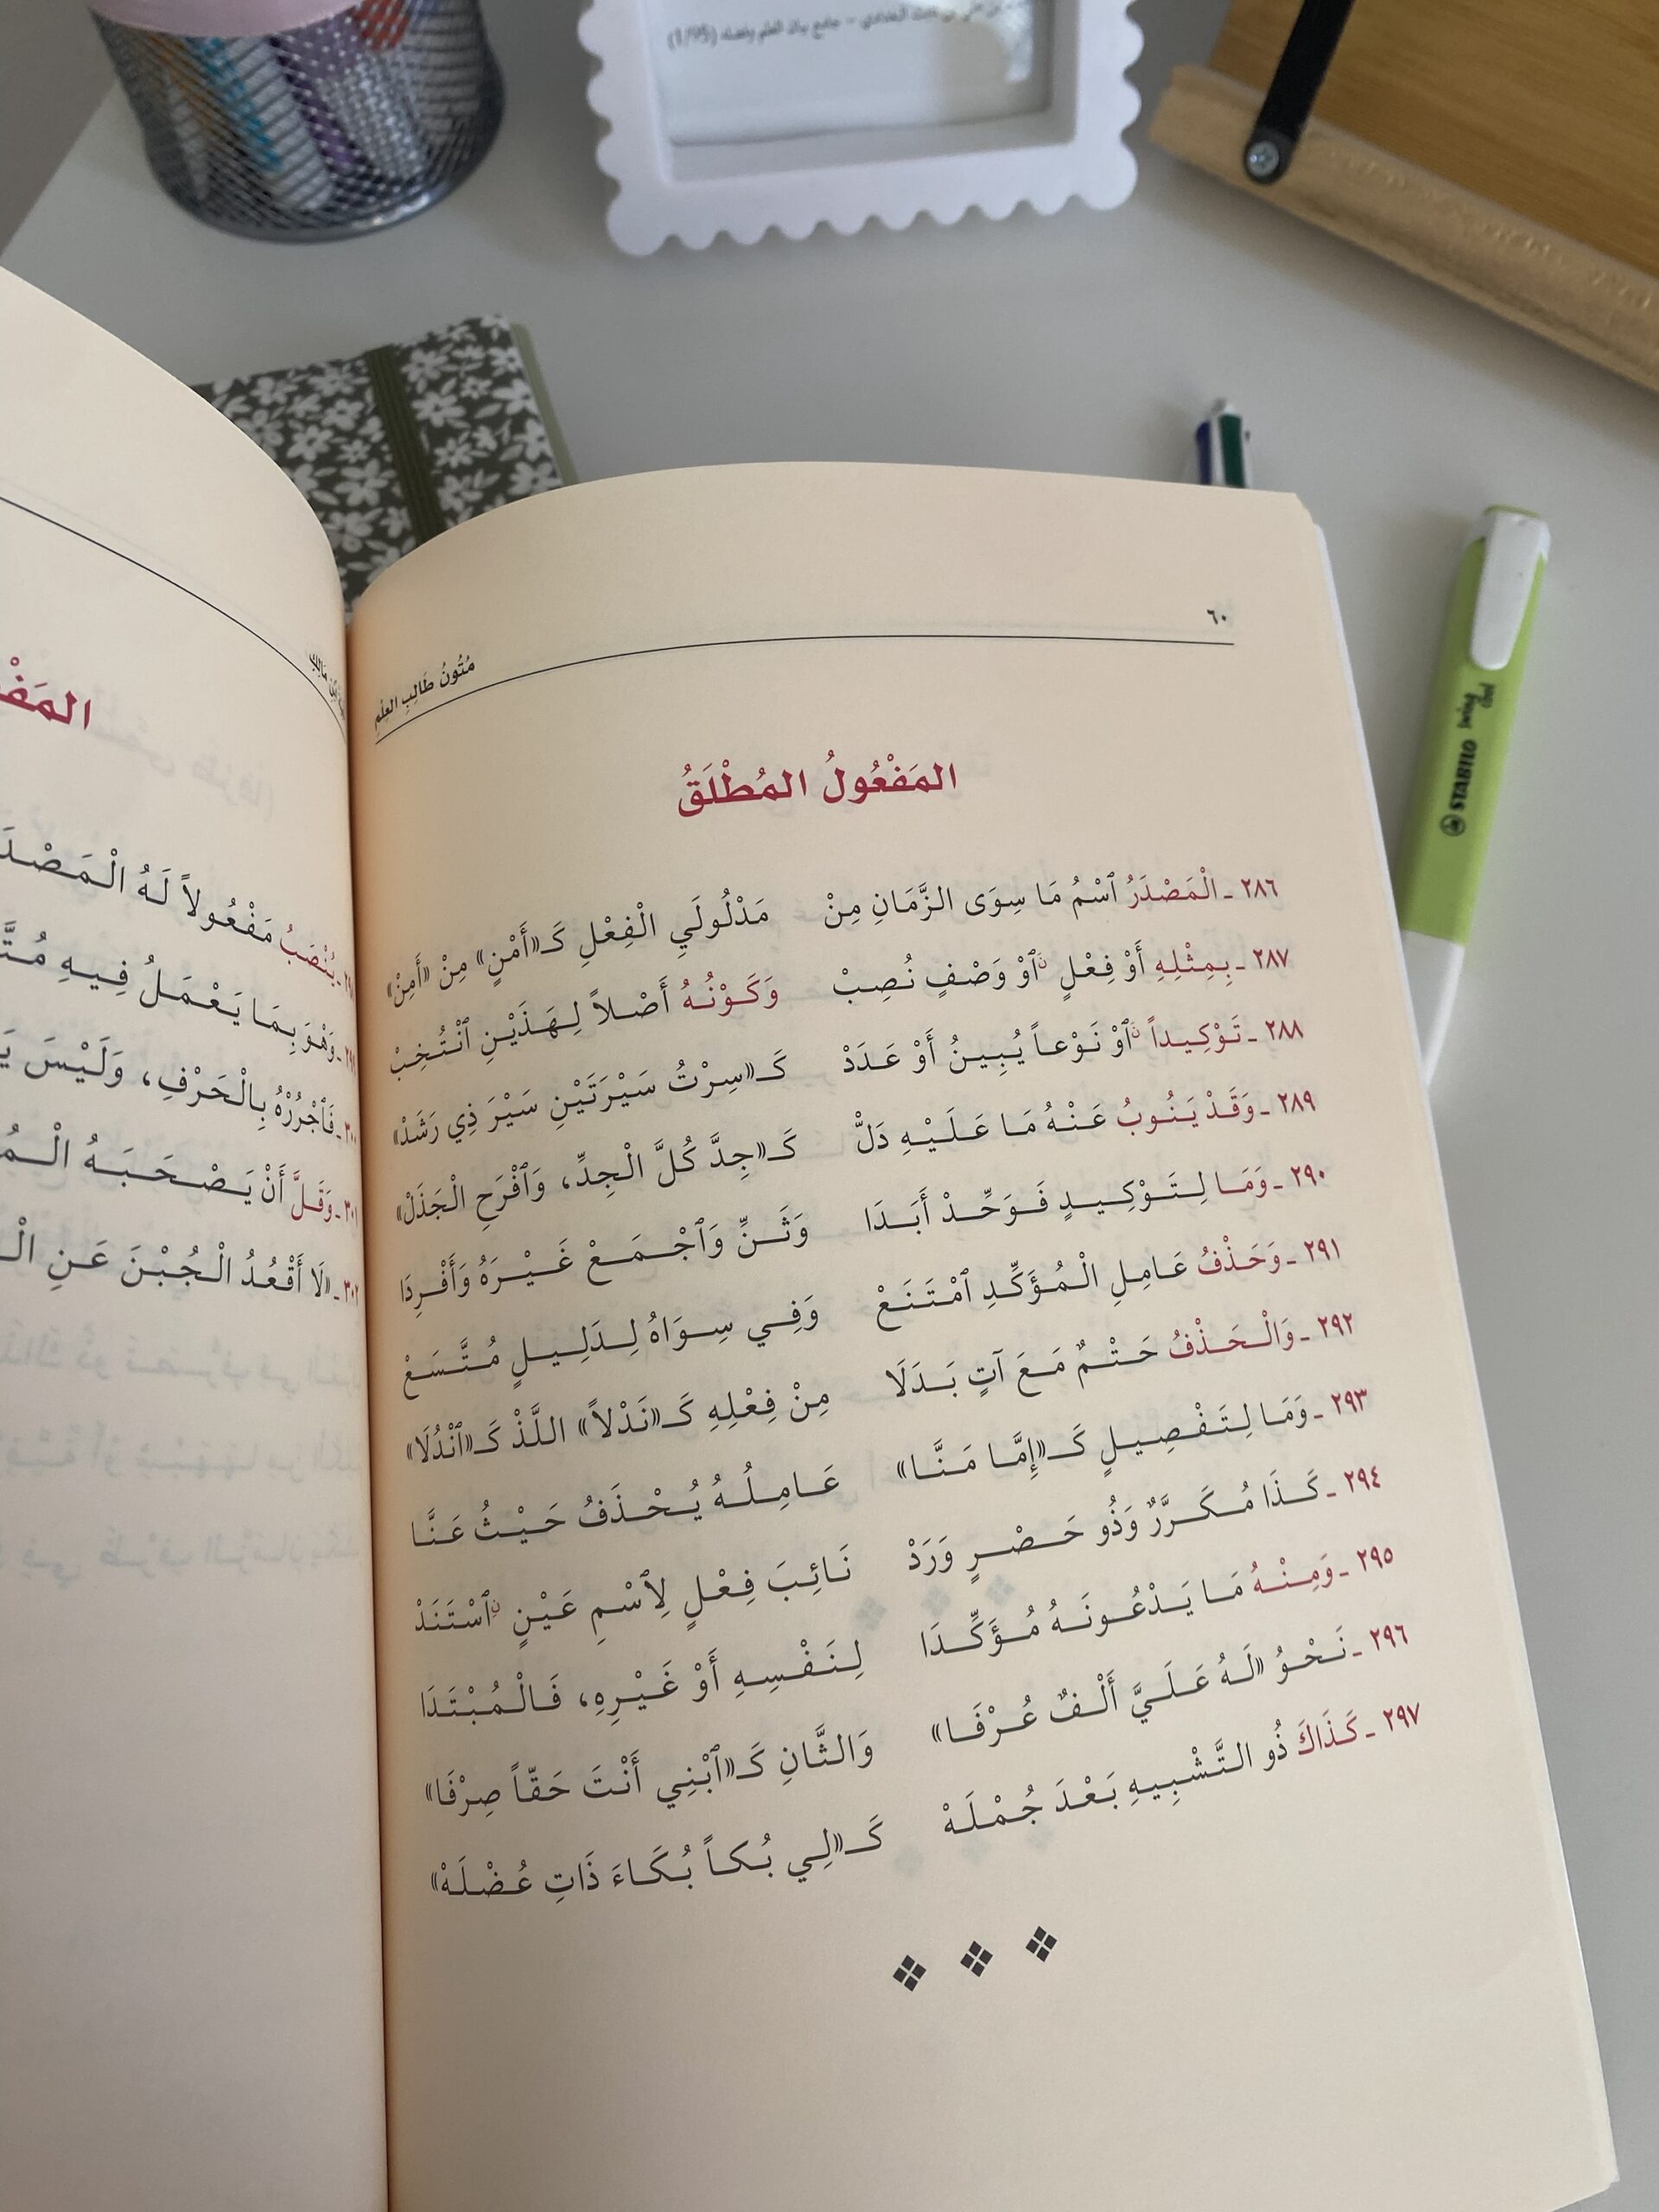 جامع بيان العلم وفضله (1/95)
٦٠
مُتُونُ طَالِبِ العِلْمِ
المَفْعُولُ المُطْلَقُ
٢٨٦ ـ الْمَصْدَرُ ٱسْمُ مَا سِوَى الزَّمَانِ مِنْ مَدْلُولَيِ الْفِعْلِ كَـ«أَمْنٍ» مِنْ «أَمِنْ»
٢٨٧ ـ بِمِثْلِهِ أَوْ فِعْلٍ ٱوْ وَصْفٍ نُصِبْ وَكَوْنُهُ أَصْلاً لِهَذَيْنِ ٱنْتُخِبْ
٢٨٨ ـ تَوْكِيداً ٱوْ نَوْعاً يُبِينُ أَوْ عَدَدْ كَـ«سِرْتُ سَيْرَتَيْنِ سَيْرَ ذِي رَشَدْ»
٢٨٩ ـ وَقَدْ يَنُوبُ عَنْهُ مَا عَلَيْهِ دَلّْ كَـ«جِدَّ كُلَّ الْجِدِّ، وَٱفْرَحِ الْجَذَلْ»
٢٩٠ ـ وَمَا لِتَوْكِيدٍ فَوَحِّدْ أَبَدَا وَثَنِّ وَٱجْمَعْ غَيْرَهُ وَأَفْرِدَا
٢٩١ ـ وَحَذْفُ عَامِلِ الْمُؤَكِّدِ ٱمْتَنَعْ وَفِي سِوَاهُ لِدَلِيلٍ مُتَّسَعْ
٢٩٢ ـ وَالْحَذْفُ حَتْمٌ مَعَ آتٍ بَدَلَا مِنْ فِعْلِهِ كَـ«نَدْلاً» اللَّذْ كَـ«ٱنْدُلَا»
٢٩٣ ـ وَمَا لِتَفْصِيلٍ كَـ«إِمَّا مَنَّا» عَامِلُهُ يُحْذَفُ حَيْثُ عَنَّا
٢٩٤ ـ كَذَا مُكَرَّرٌ وَذُو حَصْرٍ وَرَدْ نَائِبَ فِعْلٍ لِٱسْمِ عَيْنٍ ٱسْتَنَدْ
٢٩٥ ـ وَمِنْهُ مَا يَدْعُونَهُ مُؤَكِّدَا لِنَفْسِهِ أَوْ غَيْرِهِ، فَالْمُبْتَدَا
٢٩٦ ـ نَحْوُ «لَهُ عَلَيَّ أَلْفٌ عُرْفَا» وَالثَّانِ كَـ«ٱبْنِي أَنْتَ حَقّاً صِرْفَا»
٢٩٧ ـ كَذَاكَ ذُو التَّشْبِيهِ بَعْدَ جُمْلَهْ كَـ«لِي بُكاً بُكَاءَ ذَاتِ عُضْلَهْ»
يُنْصَبُ مَفْعُولاً لَهُ
وَهْوَ بِمَا يَعْمَلُ فِيهِ
٣٠٠ ـ فَٱجْرُرْهُ بِالْحَرْفِ، وَلَيْسَ
٣٠١ ـ وَقَلَّ أَنْ يَصْحَبَهُ
٣٠٢ ـ «لَا أَقْعُدُ الْجُبْنَ عَنِ
STABILO swing cool